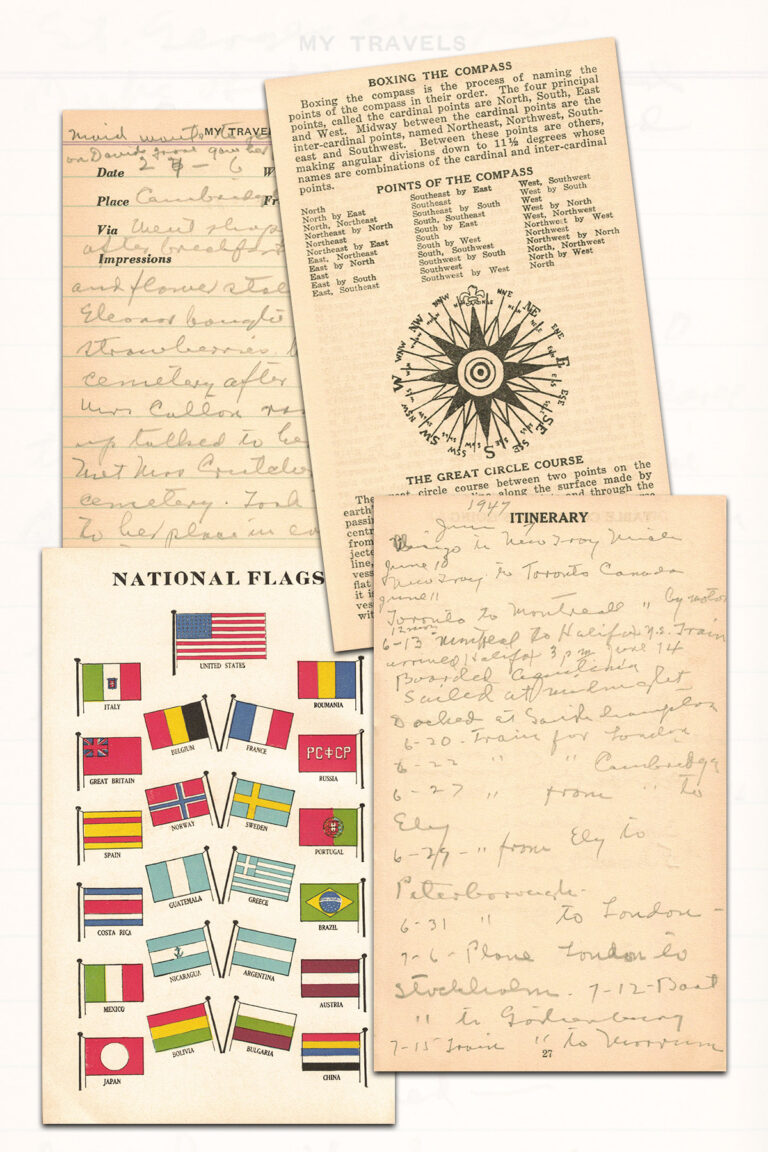 MY TRAVELS
MY TRAVEL
maid
on Davids
Date 2
Place Cambridge
Via Went shop
after breakfast
Impressions
and flower stal
Eleanor bought
strawberries.
cemetery after
Mrs
up talked to he
Met Mrs
cemetery. Took
to her place in
BOXING THE COMPASS
Boxing the compass is the process of naming the
points of the compass in their order. The four principal
points, called the cardinal points are North, South, East
and West. Midway between the cardinal points are the
inter-cardinal points, named Northeast, Northwest, South-
east and Southwest. Between these points are others,
making angular divisions down to 11½ degrees whose
names are combinations of the cardinal and inter-cardinal
points.
POINTS OF THE COMPASS
North
North by East
North, Northeast
Northeast by North
Northeast
Northeast by East
East, Northeast
East by North
East
East by South
East, Southeast
Southeast by East
Southeast
Southeast by South
South, Southeast
South by East
South
South by West
South, Southwest
Southwest by South
Southwest
Southwest by West
West, Southwest
West by South
West
West by North
West, Northwest
Northwest by West
Northwest
Northwest by North
North, Northwest
North by West
North
NNW
NNE
NW
NE
WNW
ENE
W
E
WSW
ESE
SW
SE
SSW
SSE
S
THE GREAT CIRCLE COURSE
The great circle course between two points on the
earth
along the surface made by
passi
and through the
centr
from
jecte
line,
vess
flat
it is
ves
wit
NATIONAL FLAGS
UNITED STATES
ITALY
ROUMANIA
BELGIUM
FRANCE
GREAT BRITAIN
РСФСР
RUSSIA
NORWAY
SWEDEN
SPAIN
PORTUGAL
GUATEMALA
GREECE
COSTA RICA
BRAZIL
NICARAGUA
ARGENTINA
MEXICO
AUSTRIA
BOLIVIA
BULGARIA
JAPAN
CHINA
1947
ITINERARY
June 7
to New Troy Mich
June 10
New Troy to Toronto Canada
June 11
Toronto to Montreall " by motor
12 noon
6-13 Montreal to Halifax N.S. Train
arrived Halifax 3 pm June 14
Boarded Aquitania
Sailed at midnight
Docked at Southhampton
6-20. Train for London
6-22 " " Cambridge
6-27 " from " to
Ely
6-29 - " from Ely to
Peterborough-
6-31 " to London -
7-6- Plane London to
Stockholm. 7-12-Boat
" to Gothenburg
7-15 Train " to Morrum
27